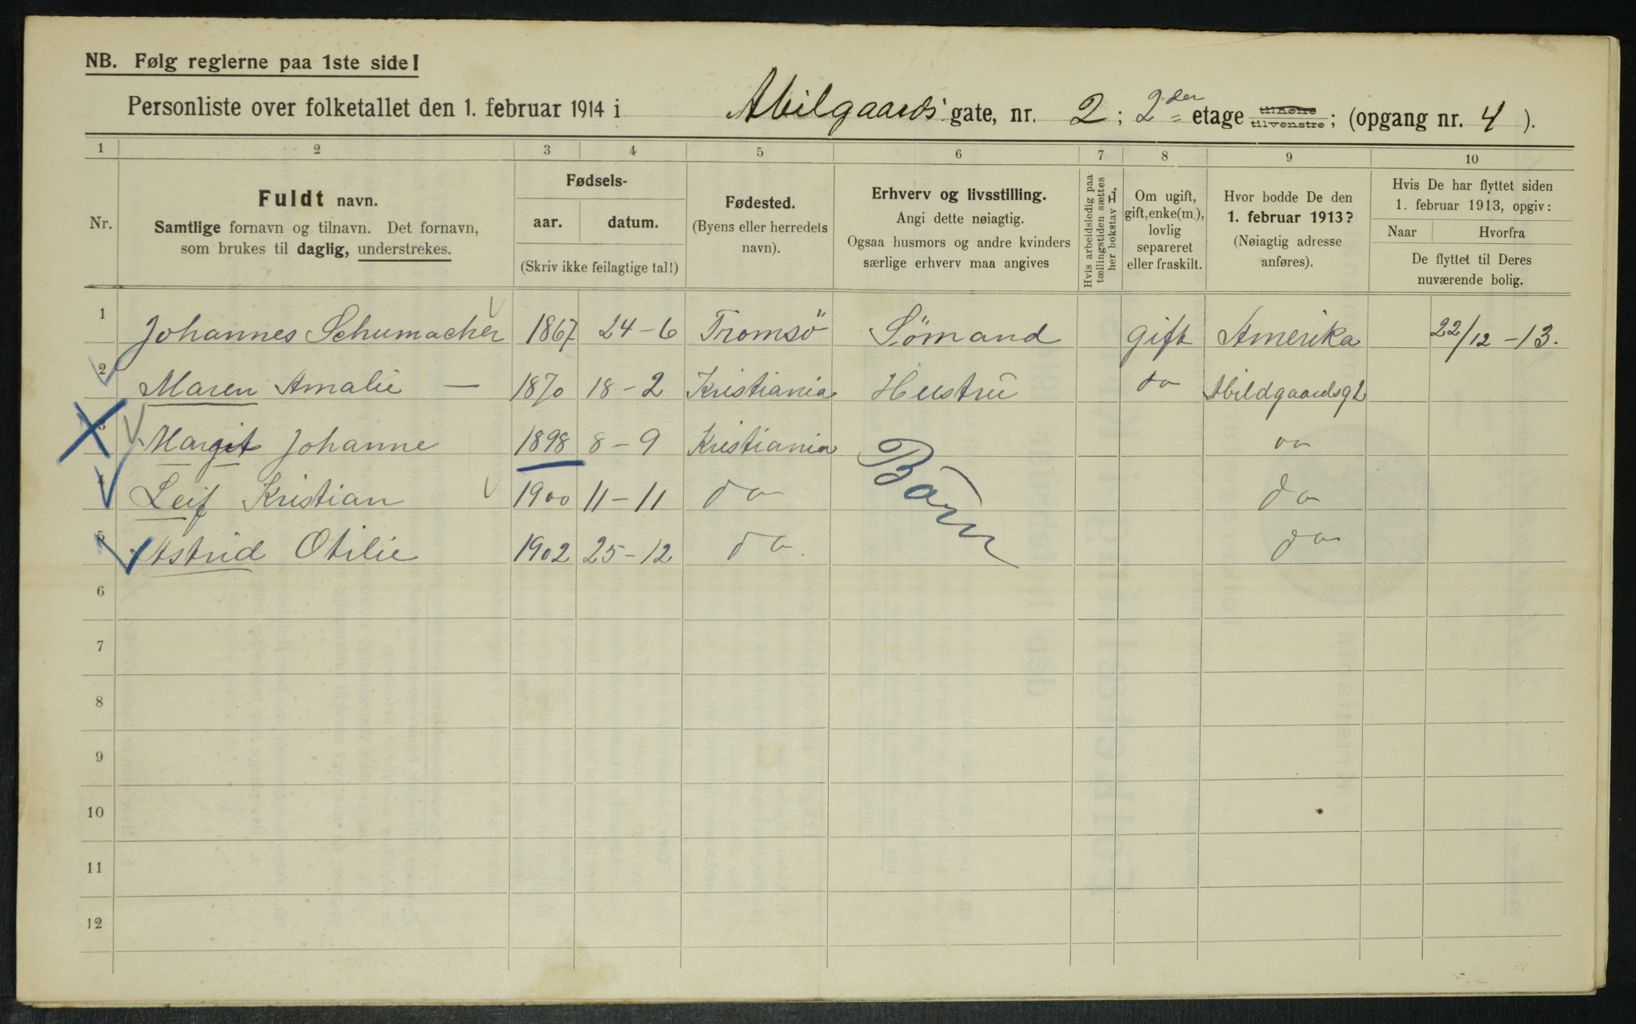 NB. Følg reglerne paa 1ste side!
Personliste over folketallet den 1. februar 1914 i Abilgaards gate, nr. 2; 2den etage tilhøire tilvenstre; (opgang nr. 4).
1 2 3 4 5 6 7 8 9 10
Nr.
Fuldt navn.
Samtlige fornavn og tilnavn. Det fornavn,
som brukes til daglig, understrekes.
Fødsels-
aar. datum.
(Skriv ikke feilagtige tal!)
Fødested.
(Byens eller herredets
navn).
Erhverv og livsstilling.
Angi dette nøiagtig.
Ogsaa husmors og andre kvinders
særlige erhverv maa angives
Hvis arbeidsledig paa
tællingstiden sættes
her bokstav L,
Om ugift,
gift, enke(m.),
lovlig
separeret
eller fraskilt.
Hvor bodde De den
1. februar 1913?
(Nøiagtig adresse
anføres).
Hvis De har flyttet siden
1. februar 1913, opgiv:
Naar Hvorfra
De flyttet til Deres
nuværende bolig.
1 Johannes Schumacher 1867 24-6 Tromsö Sömand gift Amerika 22/12-13.
2 Maren Amalie — 1870 18-2 Kristiania Hustru do Abildgaardsg 2
3 Margit Johanne 1898 8-9 Kristiania Börn do
4 Leif Kristian 1900 11-11 do do
5 Astrid Otilie 1902 25-12 do. do
6
7
8
9
10
11
12